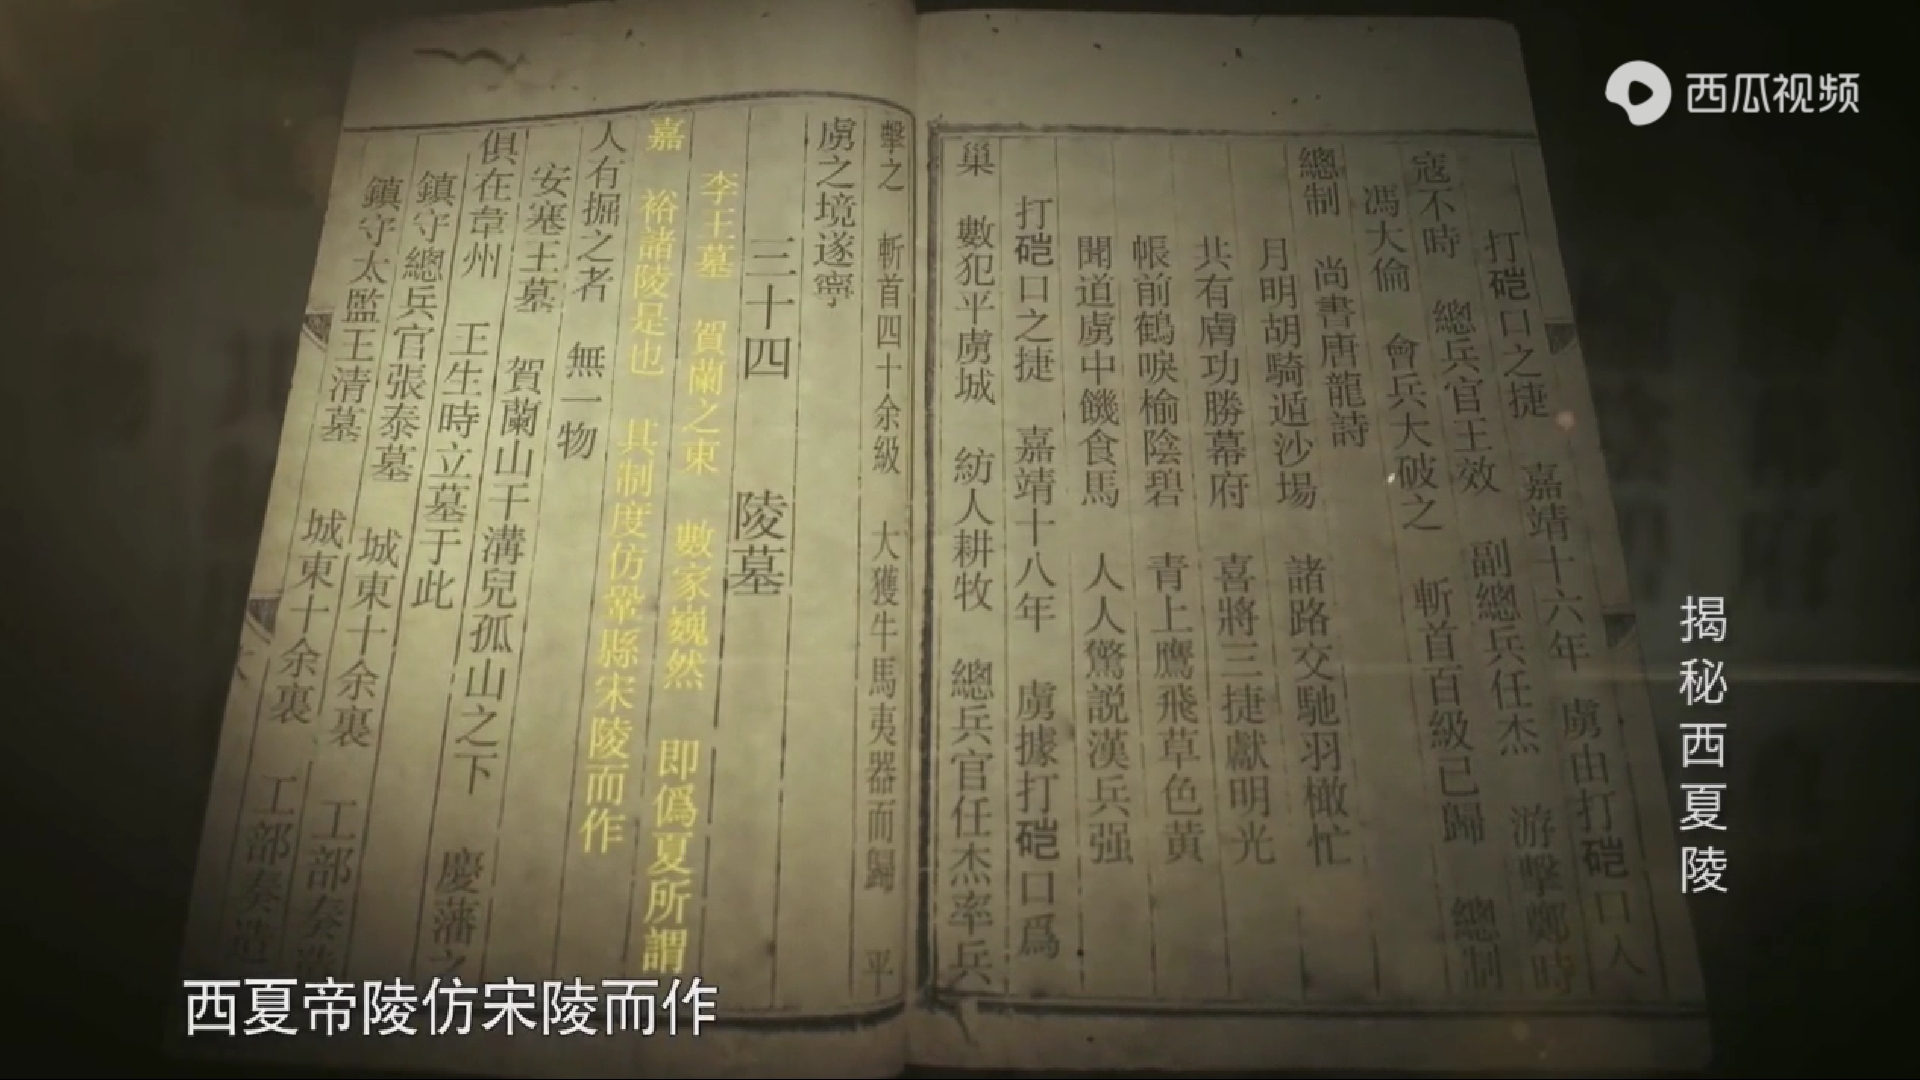 打硙口之捷 嘉靖十六年 虜由打硙口人
寇不時 總兵官王效 副總兵任杰 游擊鄭時
馮大倫 會兵大破之 斬首百級已歸 總制
總制 尚書唐龍詩
月明胡騎遁沙場 諸路交馳羽檄忙
共有膚功勝幕府 喜將三捷獻明光
帳前鶴唳榆陰碧 青上鷹飛草色黃
聞道虜中饑食馬 人人驚説漢兵强
打硙口之捷 嘉靖十八年 虜據打硙口爲
巢 數犯平虜城 紡人耕牧 總兵官任杰率兵
擊之 斬首四十余級 大獲牛馬夷器而歸 平
虜之境遂寧
三十四 陵墓
李王墓 賀蘭之東 數冢巍然 即僞夏所謂
嘉 裕諸陵是也 其制度仿鞏縣宋陵而作
人有掘之者 無一物
安塞王墓 賀蘭山干溝兒孤山之下 慶藩之
俱在韋州 王生時立墓于此
鎮守總兵官張泰墓 城東十余裏 工部奏造
鎮守太監王清墓 城東十余裏 工部奏造
西瓜视频
揭秘西夏陵
西夏帝陵仿宋陵而作